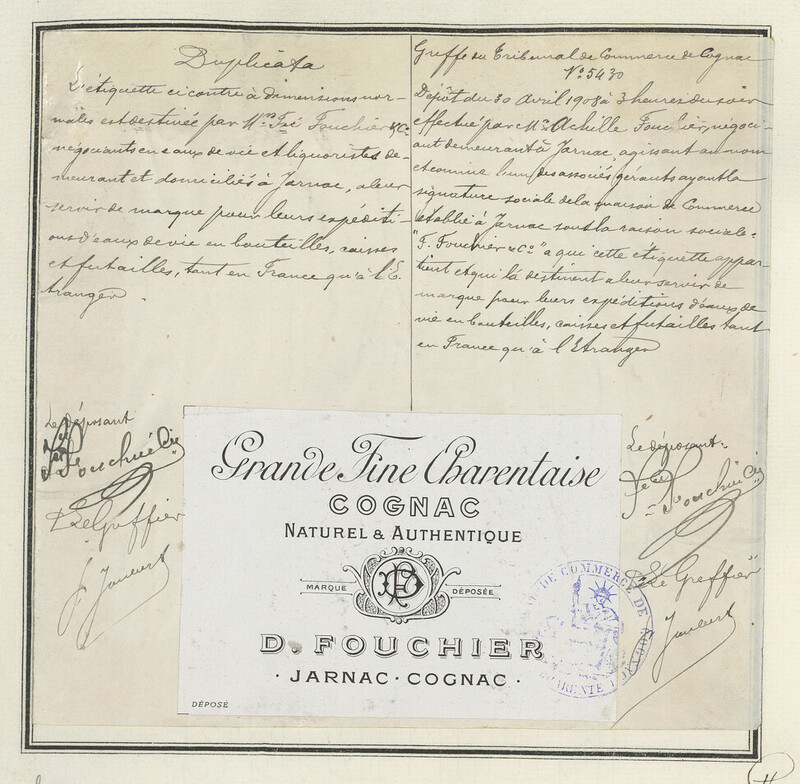 Duplicata
L'étiquette ci contre à dimensions nor-
males est destinée par Mrs Fçs Fouchier & Co
négociants en eaux de vie et liquoristes de-
meurant et domiciliés à Jarnac, a leur
servir de marque pour leurs expéditi-
ons d'eaux de vie en bouteilles, caisses
et futailles, tant en France qu'à l'E
tranger.
Le déposant
Fouchier & Cie
Le Greffier
Greffe du Tribunal de Commerce de Cognac
No 5430
Dépôt du 30 Avril 1908 à 3 heures du soir
effectué par Mr Achille Fouchier, négoci-
ant demeurant à Jarnac, agissant au nom
et comme l'un des associés gérants ayant la
signature sociale de la maison de Commerce
établie à Jarnac sous la raison sociale:
"F. Fouchier & Co" a qui cette étiquette appar-
tient et qui la destinent a leur servir de
marque pour leurs expéditions d'eaux de
vie en bouteilles, caisses et futailles tant
en France qu'à l'Etranger
Le déposant
Fouchier & Cie
Le Greffier
Grande Fine Charentaise
COGNAC
NATUREL & AUTHENTIQUE
MARQUE DÉPOSÉE
D. FOUCHIER
· JARNAC · COGNAC ·
DÉPOSÉ
DE COMMERCE DE COGNAC
CHARENTE